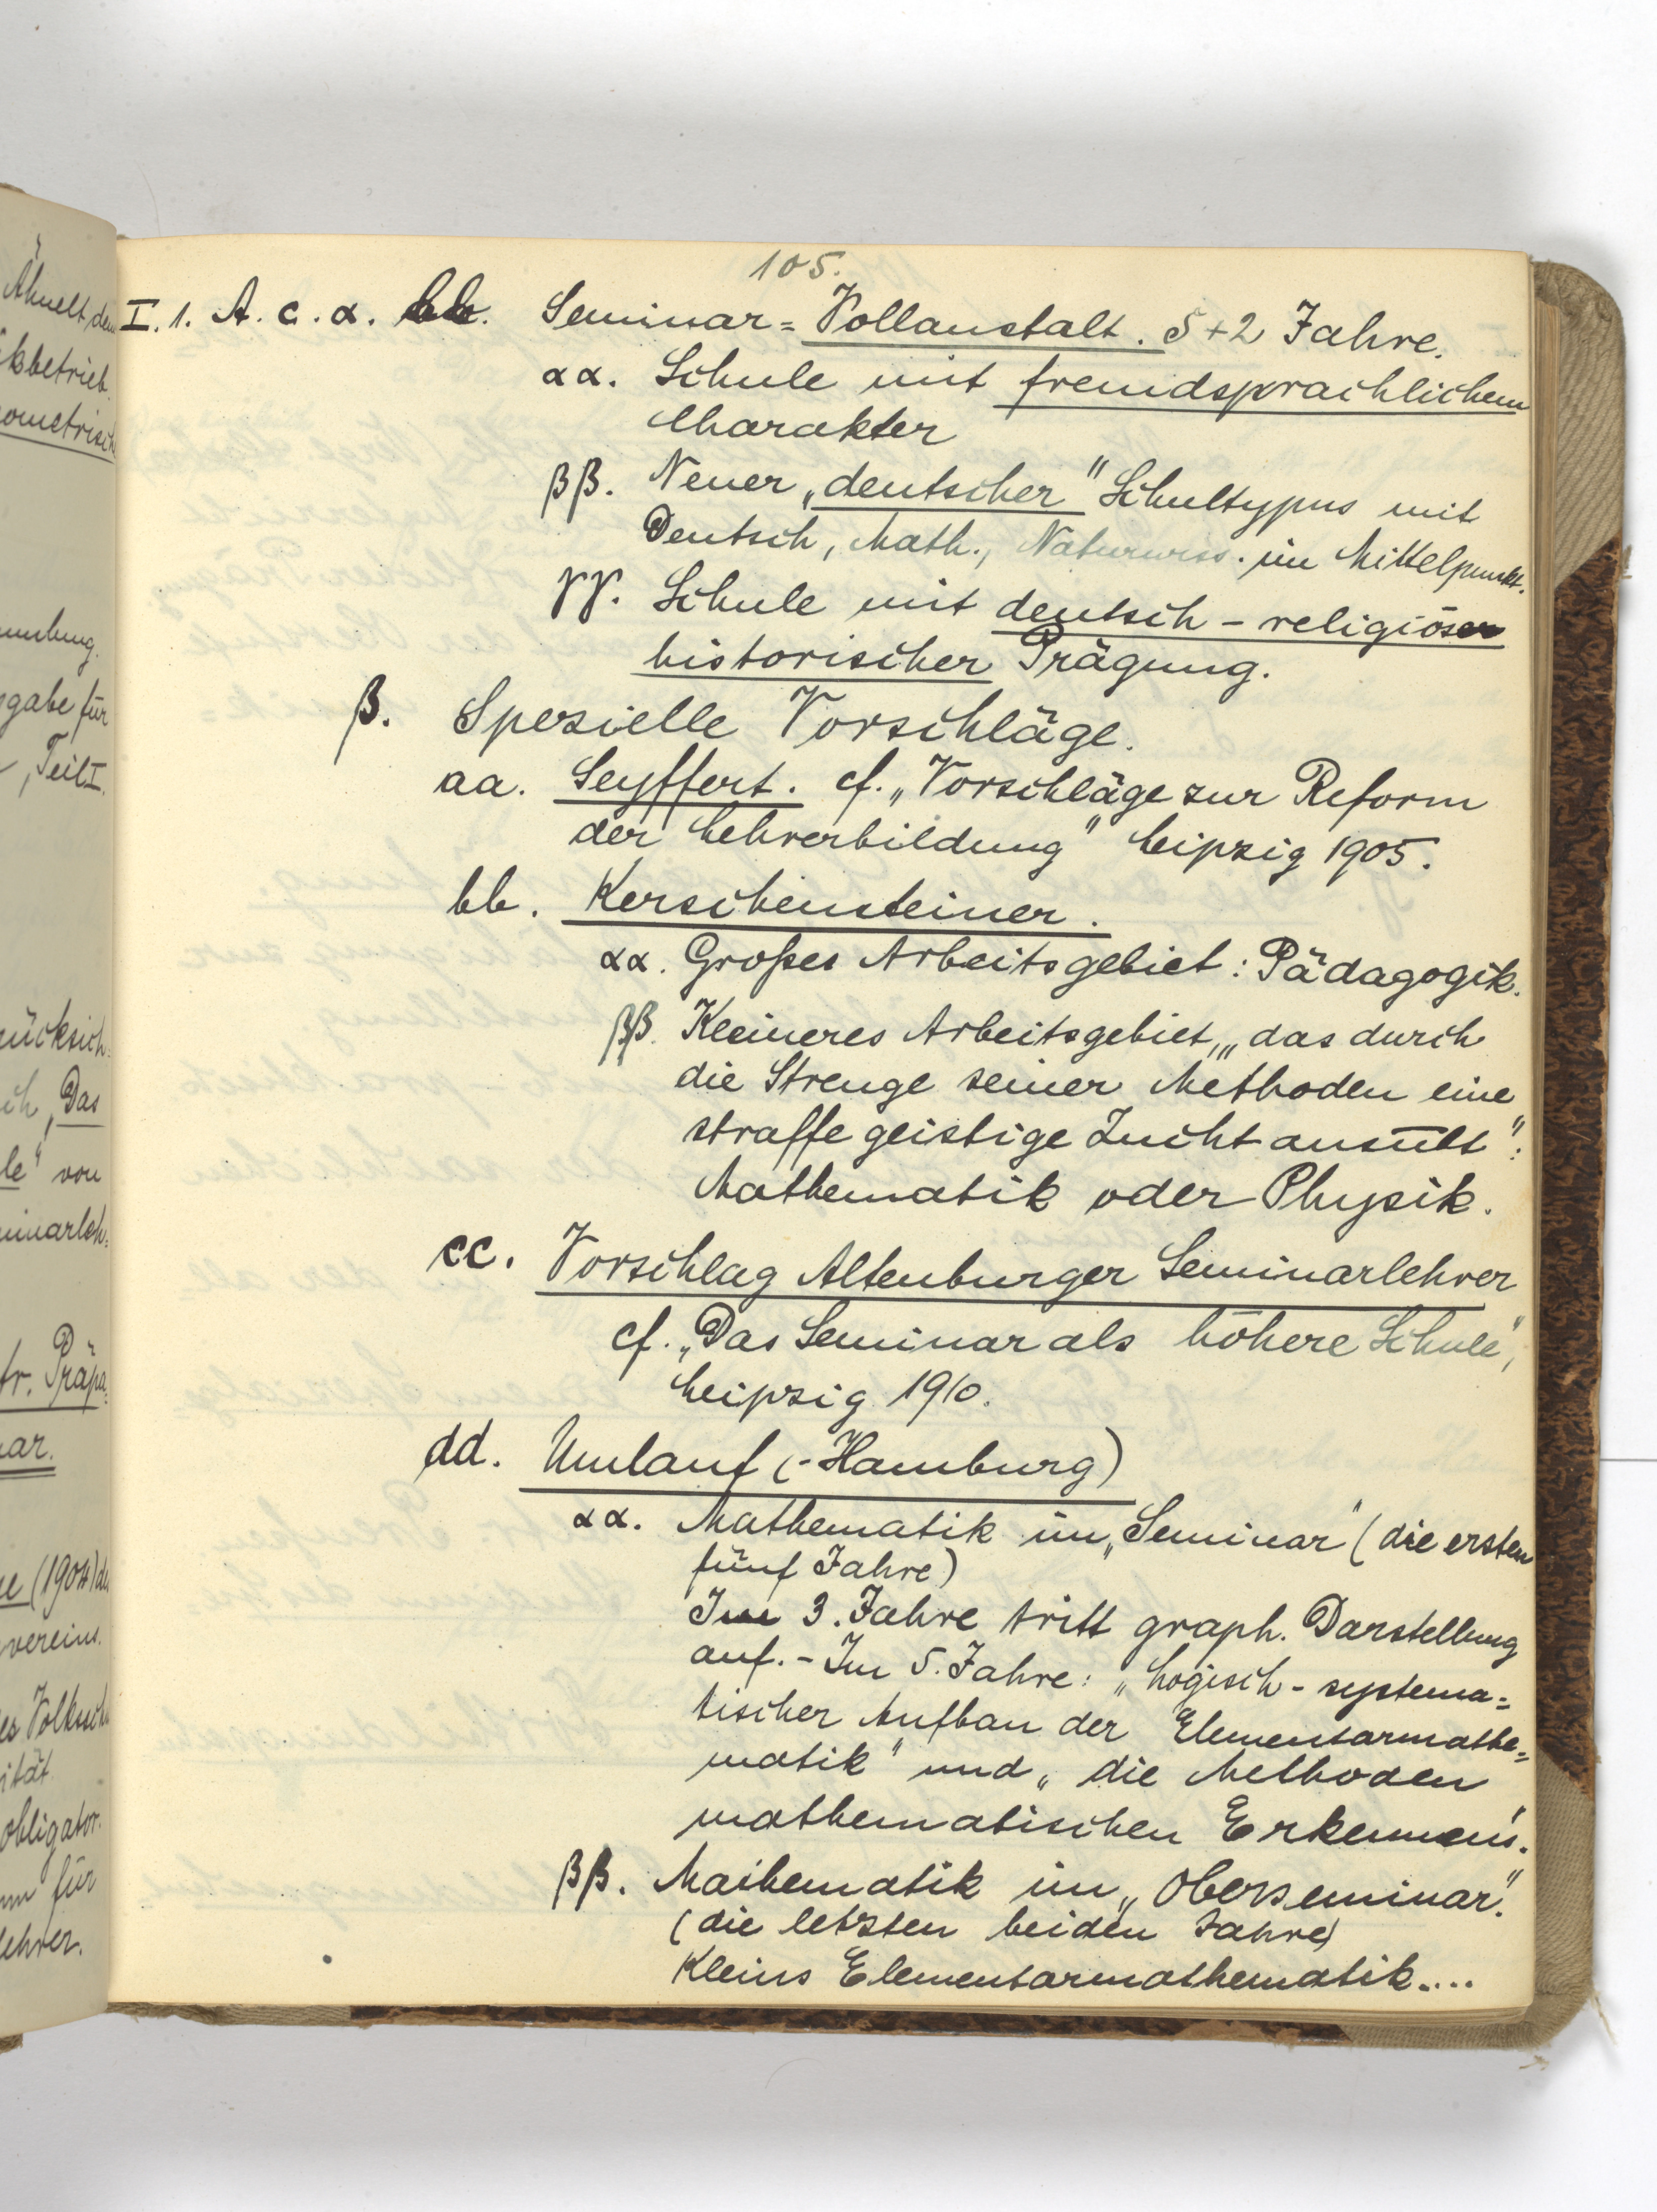 105.
I. 1. A. c. α. bb. Seminar=Vollanstalt. 5+2 Jahre.
αα. Schule mit fremdsprachlichem
Charakter
ββ. Neuer „deutscher" Schultypus mit
Deutsch, Math., Naturwiss. im Mittelpunkt.
γγ. Schule mit deutsch - religiöser
historischer Prägung.
β. Spezielle Vorschläge.
aa. Seyffert. cf. „Vorschläge zur Reform
der Lehrerbildung" Leipzig 1905.
bb. Kerschensteiner.
αα. Großes Arbeitsgebiet: Pädagogik.
ββ. Kleineres Arbeitsgebiet, „das durch
die Strenge seiner Methoden eine
straffe geistige Zucht ausübt":
Mathematik oder Physik.
cc. Vorschlag Altenburger Seminarlehrer
cf. „Das Seminar als höhere Schule",
Leipzig 1910.
dd. Umlauf (-Hamburg)
αα. Mathematik im „Seminar" (die ersten
fünf Jahre)
Im 3. Jahre tritt graph. Darstellung
auf. - Im 5. Jahre: „Logisch - systema=
tischer Aufbau der Elementarmathe=
matik" und „die Methoden
mathematischen Erkennens".
ββ. Mathematik im „Oberseminar".
(die letzten beiden Jahre)
Kleins Elementarmathematik....
Ähnelt dem
ikbetrieb.
ometrisch
gabe für
, Teil I.
rücksich=
ich „Das
le" von
minarleh=
fr. Präpa=
ar.
(1904) de
vereins.
es Volkssch
ität
obligator.
für
lehrer.